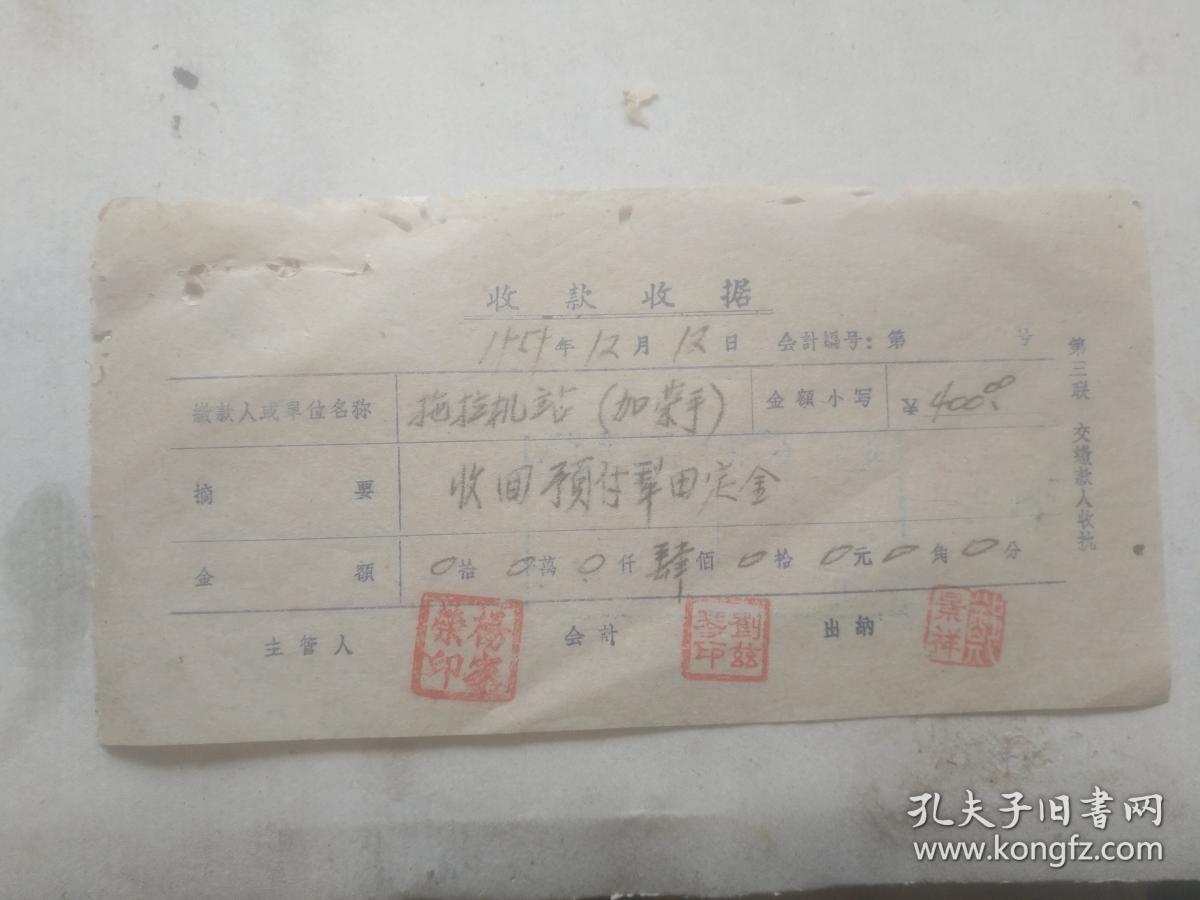 收款收据
年12月12日 会計編号：第 号
繳款人或單位名称 拖拉机站（加荣手） 金額小写 ￥400.00
摘要 收回預付犁田定金
金額 0拾0萬0仟肆佰0拾0元0角0分
主管人 楊 榮印 会計 劉茲琴印 出納 景祥
第三联 交繳款人收执
孔夫子旧书网
www.kongfz.com